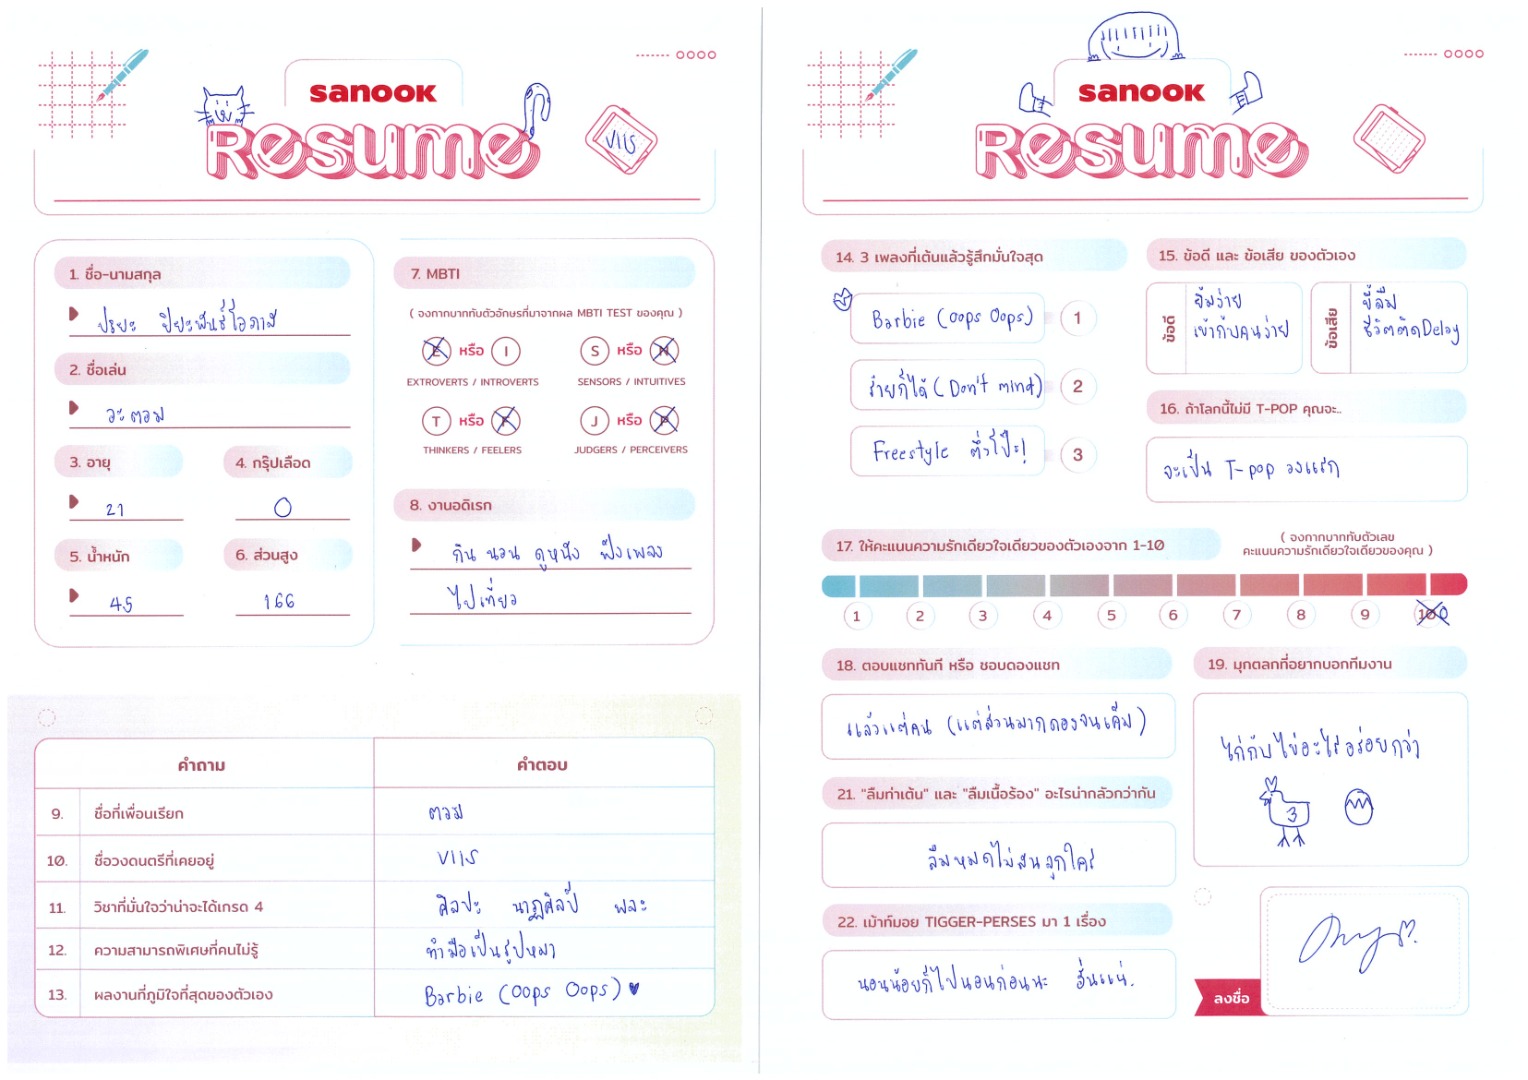 sanook
Resume
VIIS
1. ชื่อ-นามสกุล
ปรยะ ปิยะพันธ์โอภาส
2. ชื่อเล่น
อะตอม
3. อายุ
4. กรุ๊ปเลือด
21
O
5. น้ำหนัก
6. ส่วนสูง
45
166
7. MBTI
( จงกากบาททับตัวอักษรที่มาจากผล MBTI TEST ของคุณ )
E หรือ I
S หรือ N
EXTROVERTS / INTROVERTS
SENSORS / INTUITIVES
T หรือ F
J หรือ P
THINKERS / FEELERS
JUDGERS / PERCEIVERS
8. งานอดิเรก
กิน นอน ดูหนัง ฟังเพลง
ไปเที่ยว
คำถาม
คำตอบ
9. ชื่อที่เพื่อนเรียก
ตอม
10. ชื่อวงดนตรีที่เคยอยู่
VIIS
11. วิชาที่มั่นใจว่าน่าจะได้เกรด 4
ศิลปะ นาฏศิลป์ พละ
12. ความสามารถพิเศษที่คนไม่รู้
ทำมือเป็นรูปหมา
13. ผลงานที่ภูมิใจที่สุดของตัวเอง
Barbie (Oops Oops) ♥
sanook
Resume
14. 3 เพลงที่เต้นแล้วรู้สึกมั่นใจสุด
Barbie (Oops Oops)
1
ร้ายก็ได้ (Don't mind)
2
Freestyle ตึ่งโป๊ะ!
3
15. ข้อดี และ ข้อเสีย ของตัวเอง
ข้อดี
ยิ้มง่าย
เข้ากับคนง่าย
ข้อเสีย
ขี้ลืม
ชีวิตติด Delay
16. ถ้าโลกนี้ไม่มี T-POP คุณจะ..
จะเป็น T-pop วงแรก
17. ให้คะแนนความรักเดียวใจเดียวของตัวเองจาก 1-10
( จงกากบาททับตัวเลข
คะแนนความรักเดียวใจเดียวของคุณ )
1 2 3 4 5 6 7 8 9 100
18. ตอบแชททันที หรือ ชอบดองแชท
แล้วแต่คน (แต่ส่วนมากดองจนเค็ม)
19. มุกตลกที่อยากบอกทีมงาน
ไก่กับไข่อะไรอร่อยกว่า
3
21. "ลืมท่าเต้น" และ "ลืมเนื้อร้อง" อะไรน่ากลัวกว่ากัน
ลืมหมดไม่สนลูกใคร
22. เม้าท์มอย TIGGER-PERSES มา 1 เรื่อง
นอนน้อยก็ไปนอนก่อนนะ
ลงชื่อ